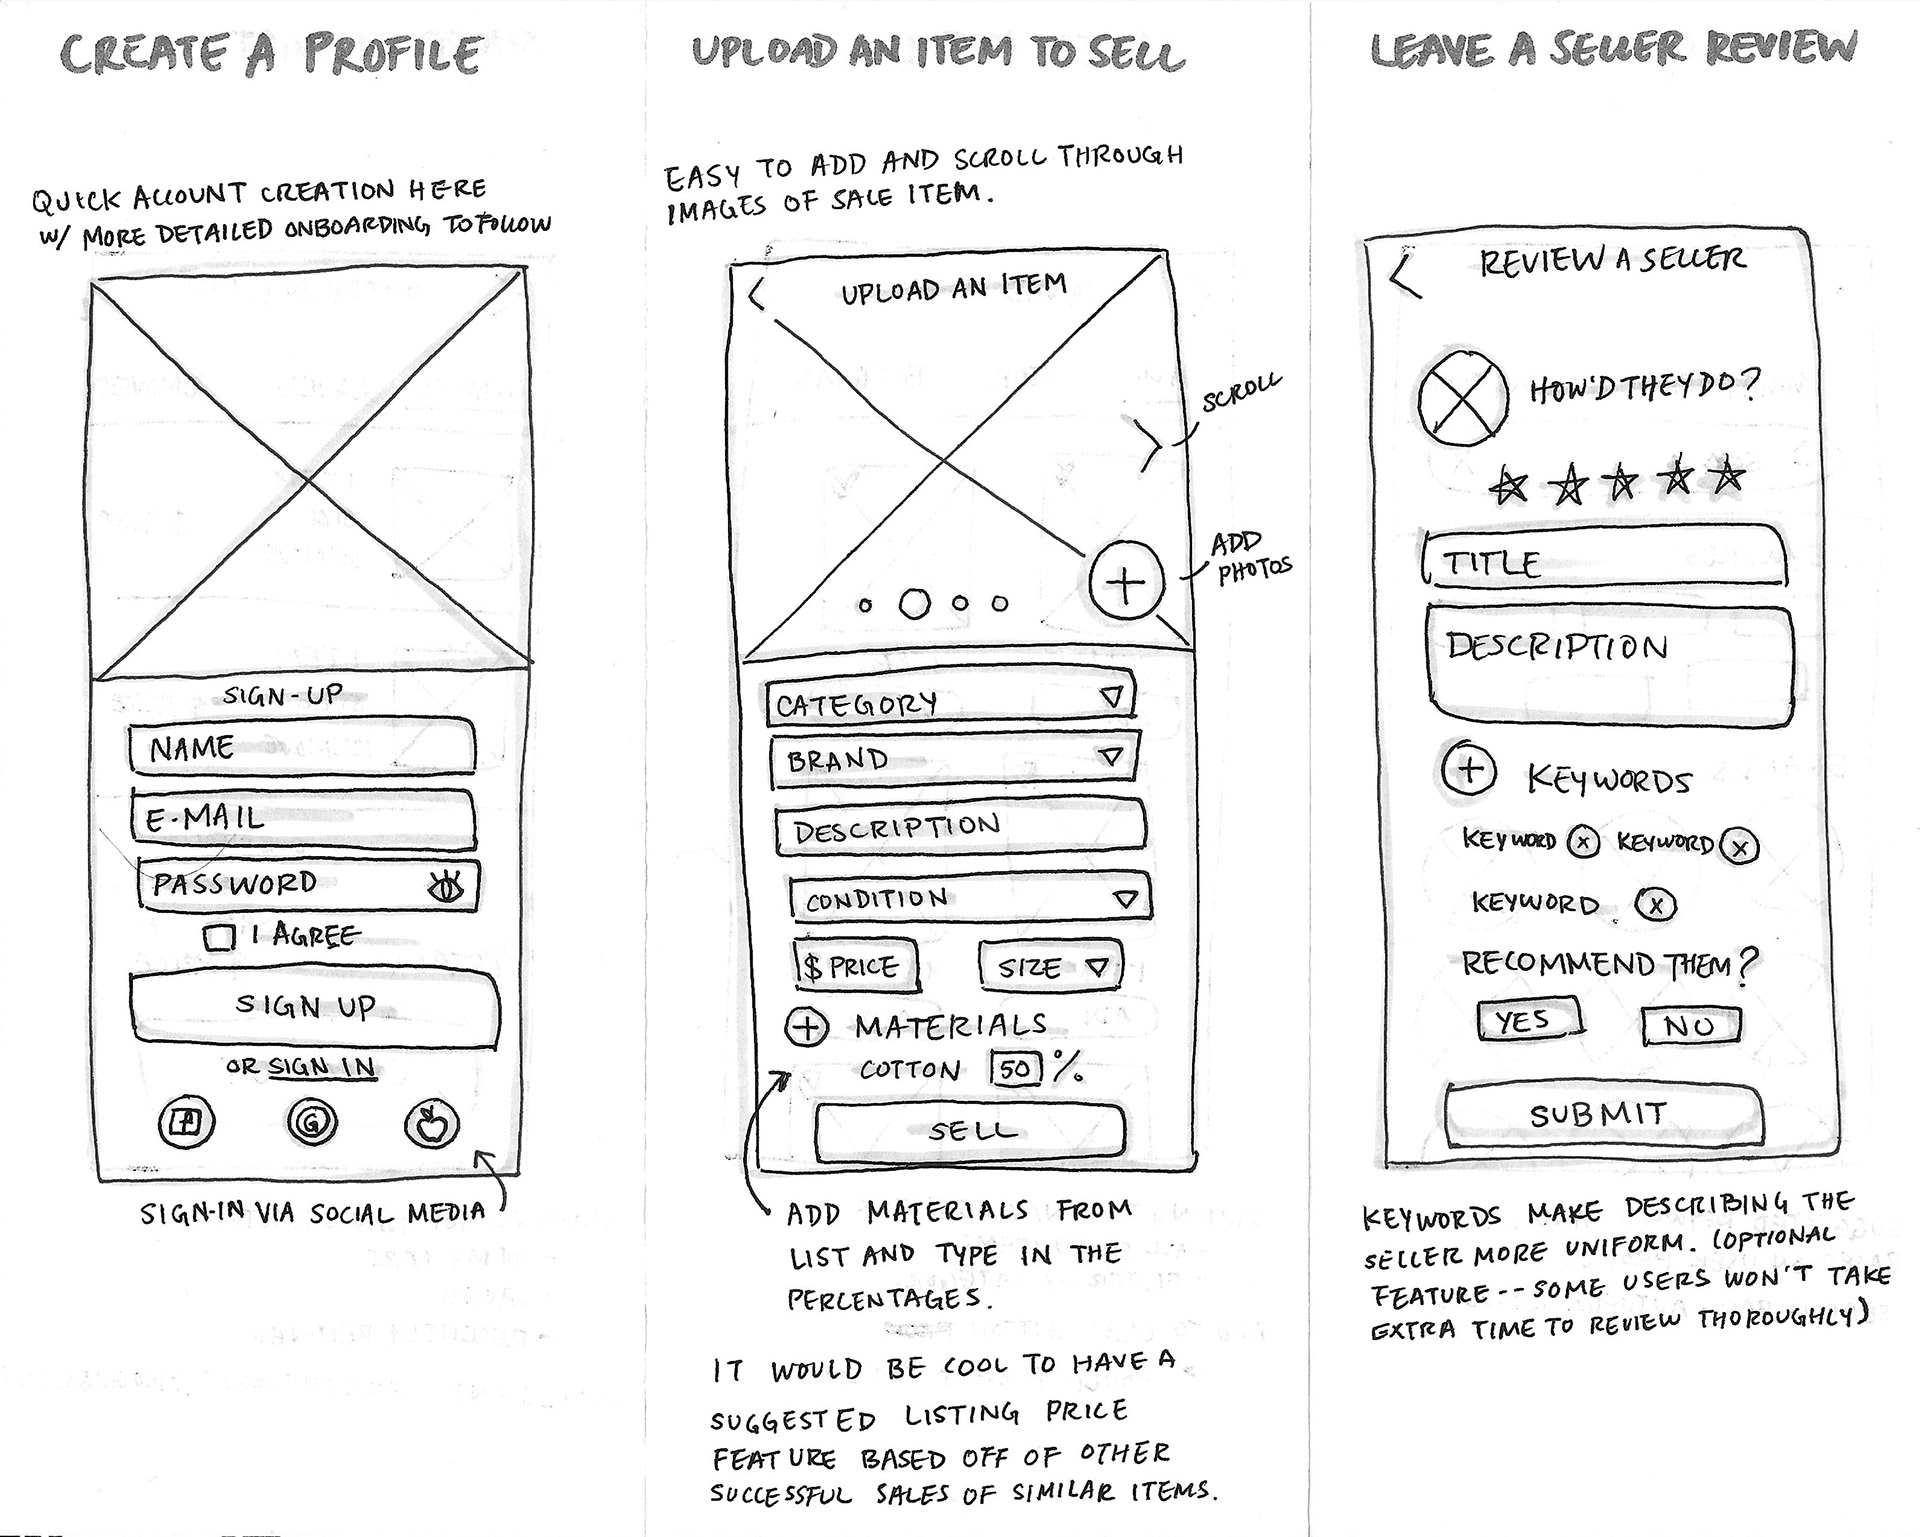 CREATE A PROFILE
QUICK ACCOUNT CREATION HERE
W/ MORE DETAILED ONBOARDING TO FOLLOW
SIGN-UP
NAME
E-MAIL
PASSWORD
I AGREE
SIGN UP
OR SIGN IN
f G
SIGN-IN VIA SOCIAL MEDIA
UPLOAD AN ITEM TO SELL
EASY TO ADD AND SCROLL THROUGH
IMAGES OF SALE ITEM.
< UPLOAD AN ITEM
> SCROLL
+ ADD
PHOTOS
CATEGORY
BRAND
DESCRIPTION
CONDITION
$ PRICE SIZE
+ MATERIALS
COTTON 50 %
SELL
ADD MATERIALS FROM
LIST AND TYPE IN THE
PERCENTAGES.
IT WOULD BE COOL TO HAVE A
SUGGESTED LISTING PRICE
FEATURE BASED OFF OF OTHER
SUCCESSFUL SALES OF SIMILAR ITEMS.
LEAVE A SELLER REVIEW
< REVIEW A SELLER
HOW'D THEY DO?
TITLE
DESCRIPTION
+ KEYWORDS
KEYWORD x KEYWORD x
KEYWORD x
RECOMMEND THEM?
YES NO
SUBMIT
KEYWORDS MAKE DESCRIBING THE
SELLER MORE UNIFORM. (OPTIONAL
FEATURE -- SOME USERS WON'T TAKE
EXTRA TIME TO REVIEW THOROUGHLY)